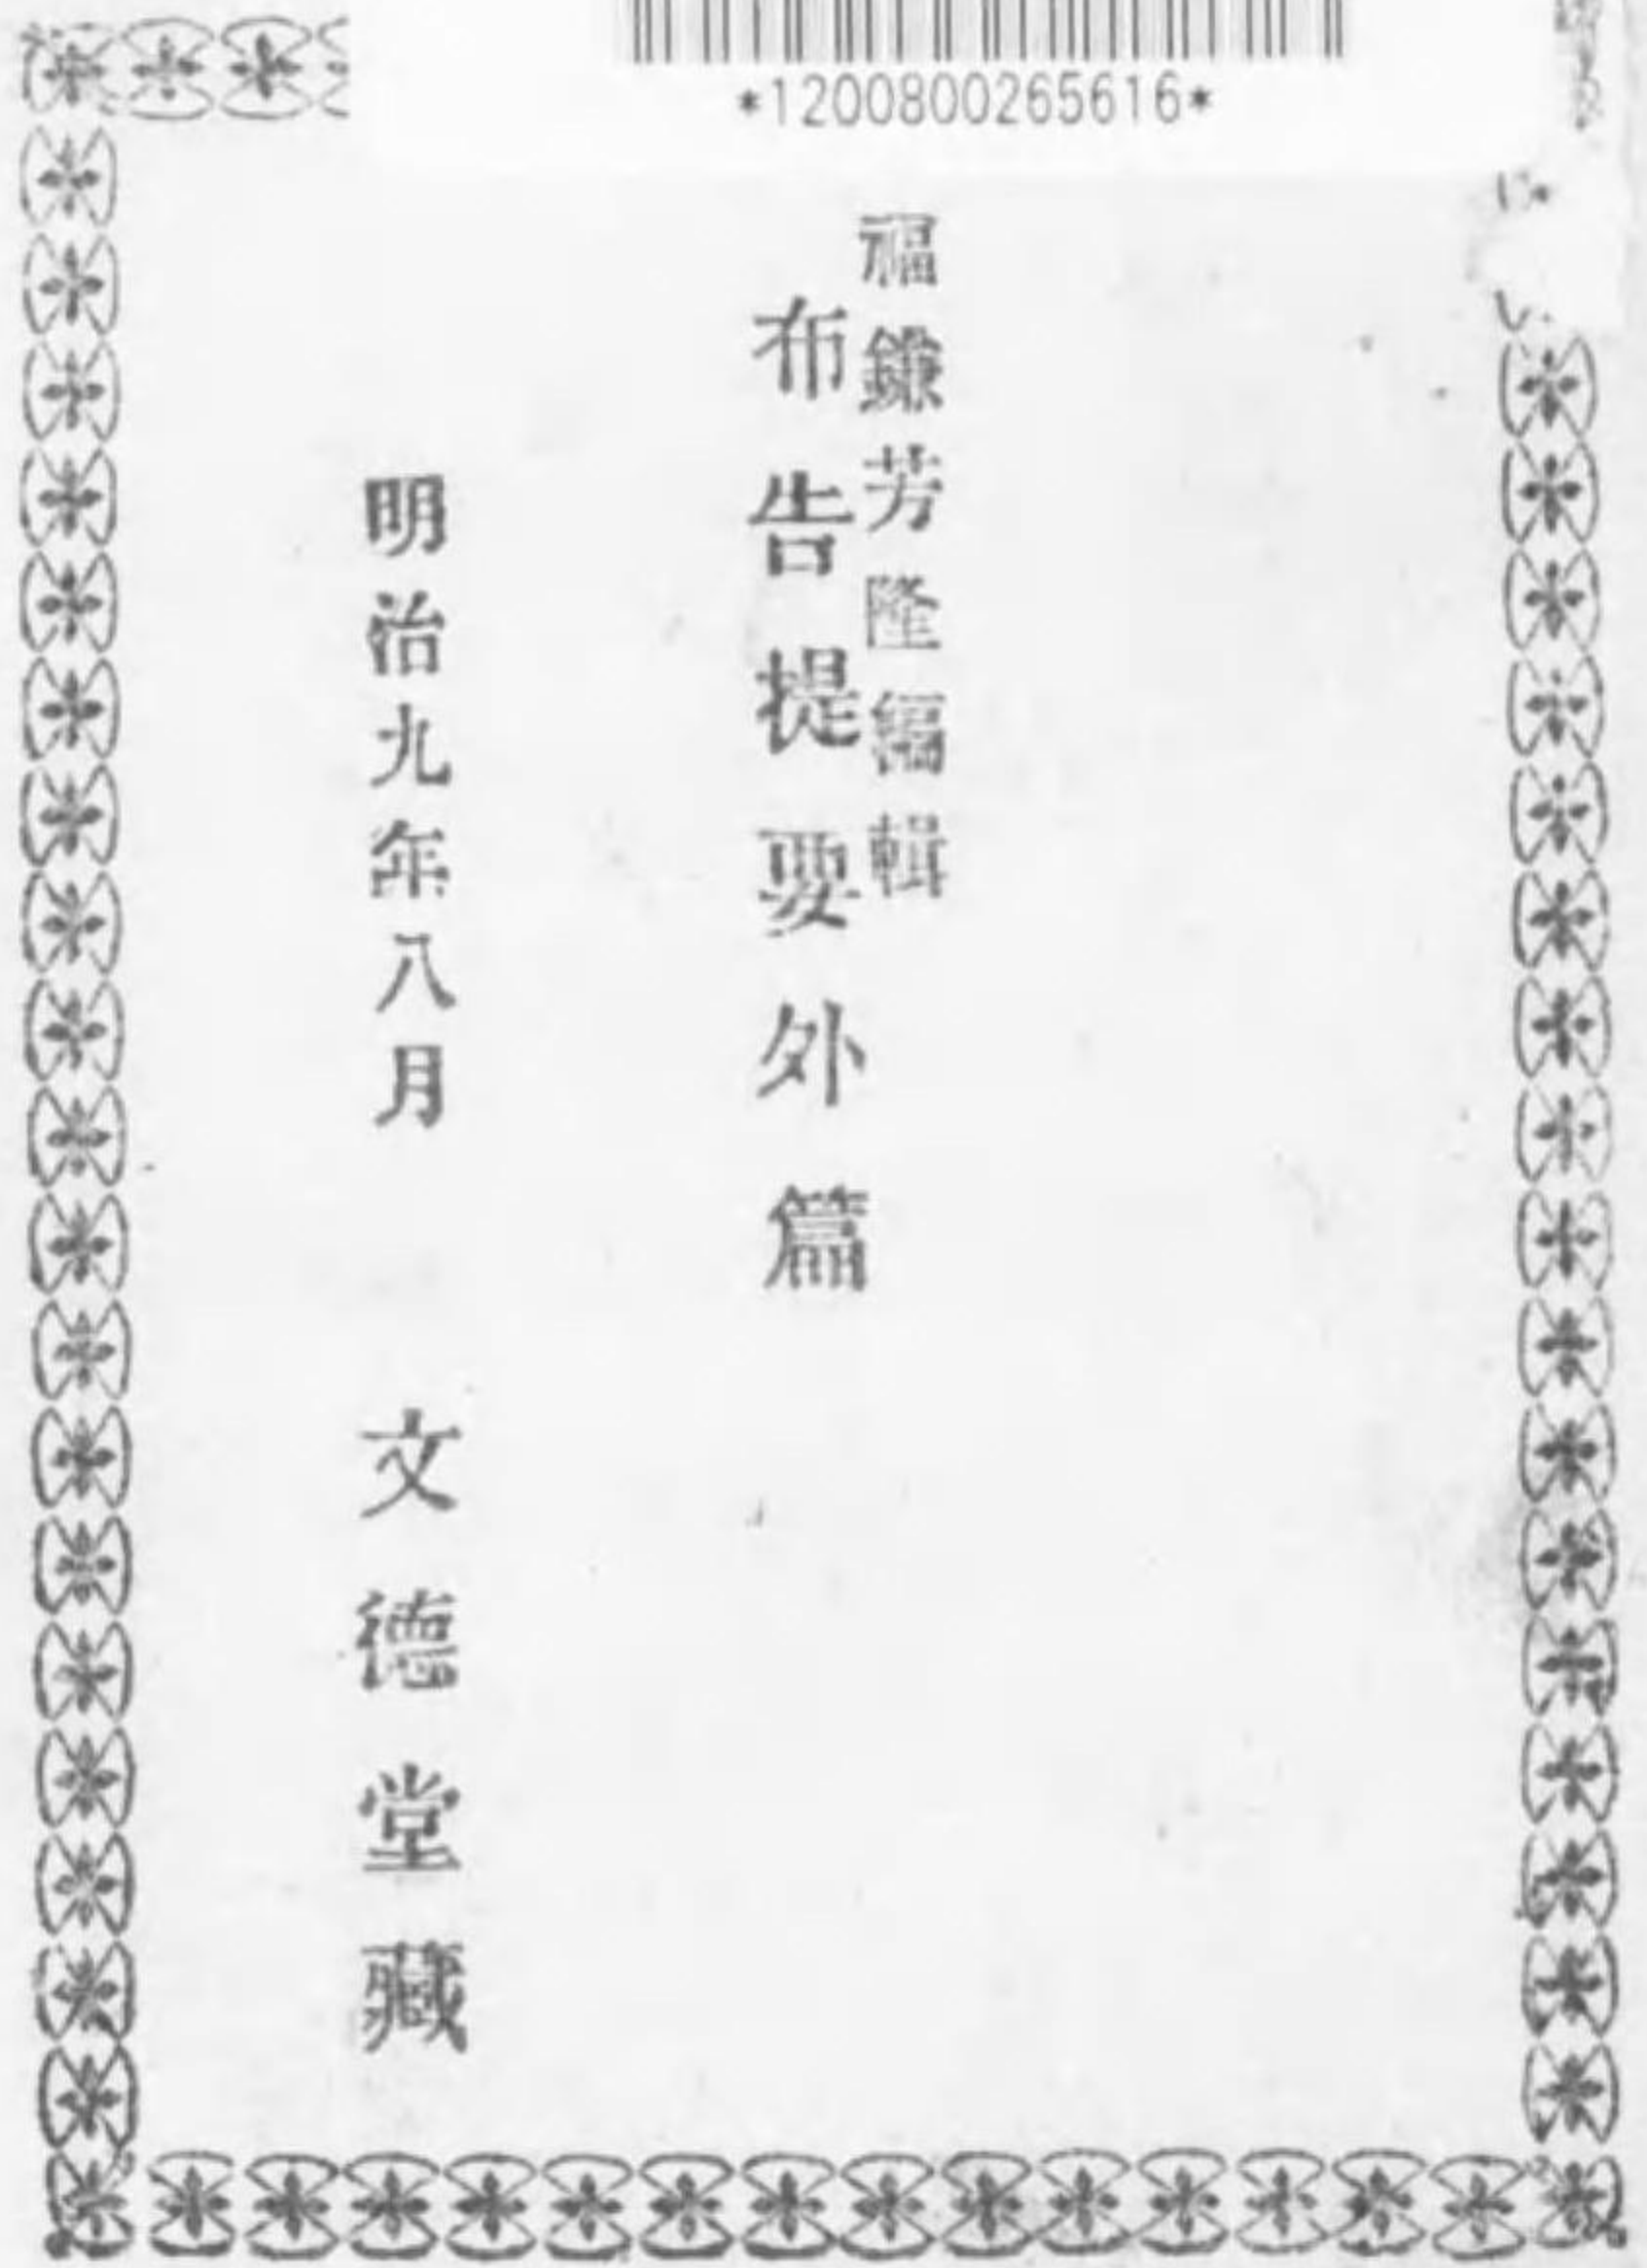 *1200800265616*
福鎌芳隆編輯
布告提要外篇
明治九年八月 文德堂藏